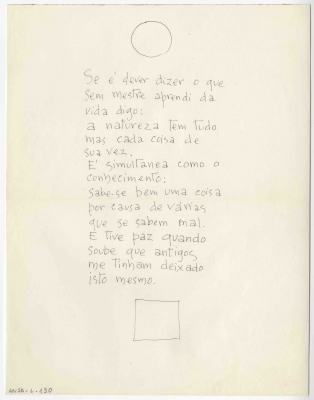 Se é dever dizer o que
sem mestre aprendi da
vida digo:
a natureza tem tudo
mas cada coisa de
sua vez.
E' simultanea como o
conhecimento:
sabe-se bem uma coisa
por causa de várias
que se sabem mal.
E tive paz quando
soube que antigos
me tinham deixado
isto mesmo.